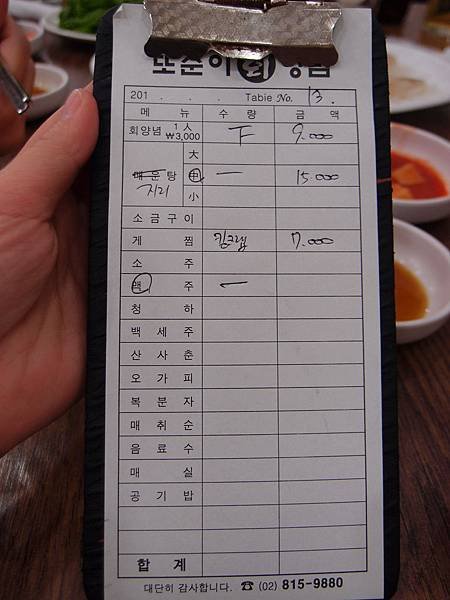 또순이 회 양념
201 . . . Table No. 13.
메 뉴 수 량 금 액
회양념 1人 ₩3,000 下 9.000
大
매운탕 지리 中 一 15.000
小
소금구이
게 찜 킹크랩 7.000
소 주
맥 주 一
청 하
백 세 주
산 사 춘
오 가 피
복 분 자
매 취 순
음 료 수
매 실
공 기 밥
합 계
대단히 감사합니다. ☎ (02) 815-9880